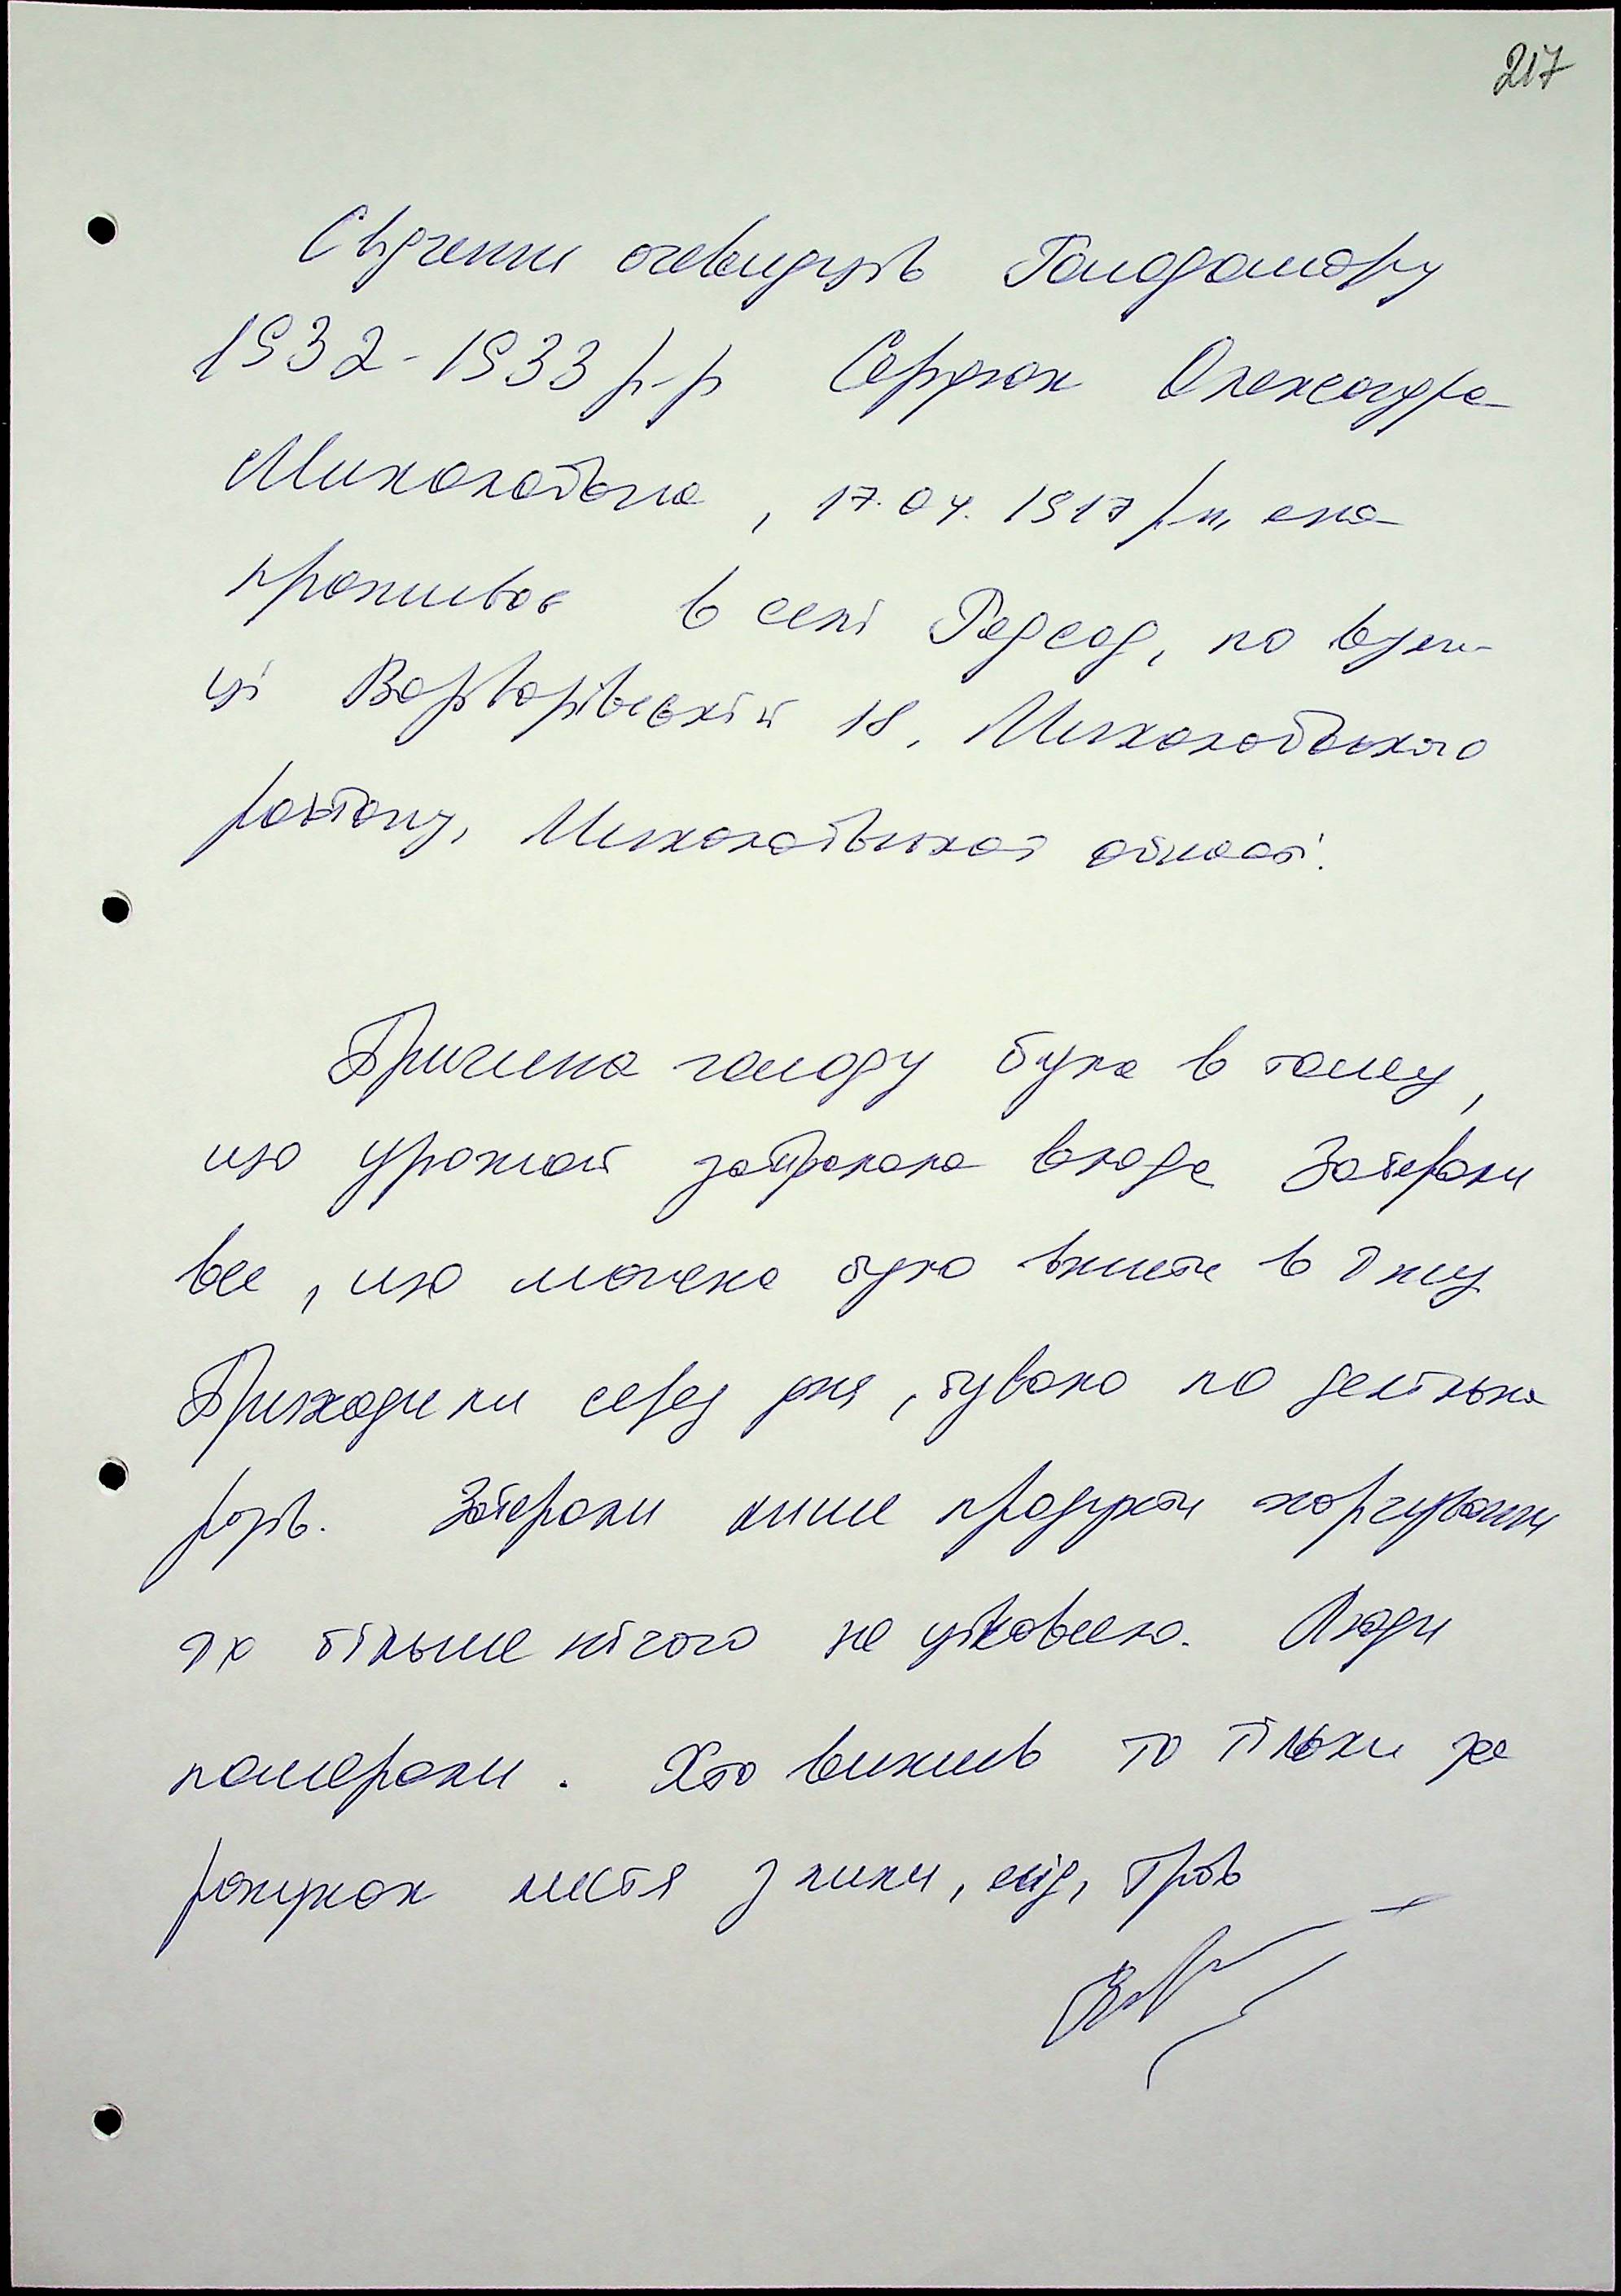 217
Свідчення очевидців Голодомору
1932-1933 р-р Сердюк Олександра
Миколаївна, 17.04.1917 р.н, яка
проживає в селі Радсад, по вули-
ці Варварівській 18, Миколаївського
району, Миколаївської області.
Причина голоду була в тому,
що урожай забирала влада Забирали
все, що можна було вжити в їжу
Приходили серед дня, бувало по декілька
разів. Забирали лише продукти харчування
їх більше нічого не цікавило. Люди
помирали. Хто вижив то тільки за
рахунок листя з липи, трав